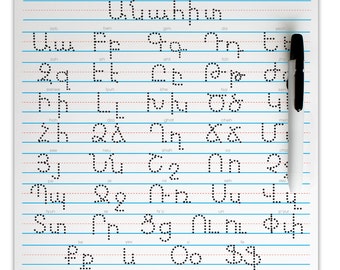 Անահիտ
Աա Բբ Գգ Դդ Եե
Զզ Էէ Ըը Թթ Ժժ
Իի Լլ Խխ Ծծ Կկ
Հհ Ձձ Ղղ Ճճ Մմ
Յյ Նն Շշ Ոո Չչ
Պպ Ջջ Ռռ Սս Վվ
Տտ Րր Ցց Ուու Փփ
Քք և Օօ Ֆֆ